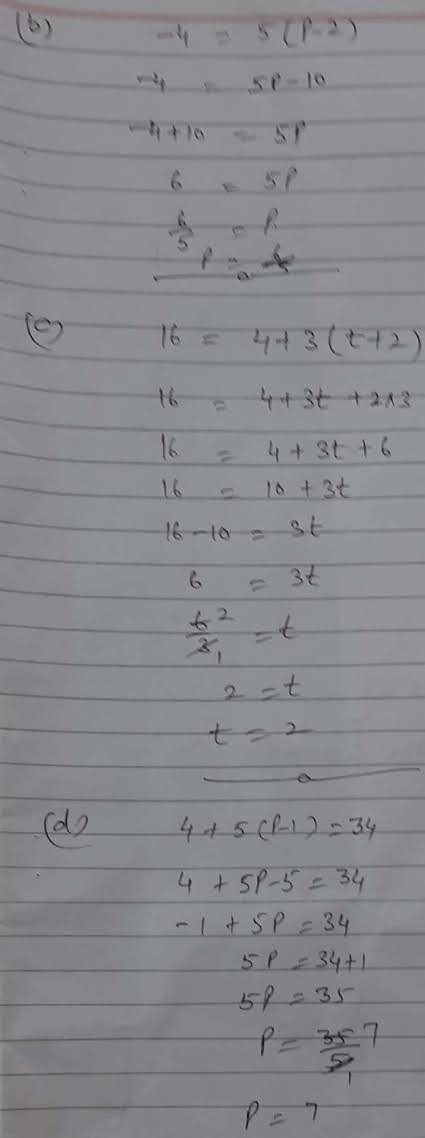 (b) -4 = 5(P-2)
-4 = 5P-10
-4+10 = 5P
6 = 5P
6/5 = P
P =
(c) 16 = 4+3(t+2)
16 = 4+3t+2×3
16 = 4+3t+6
16 = 10+3t
16-10 = 3t
6 = 3t
6/3 2/1 = t
2 = t
t = 2
(d) 4+5(P-1)=34
4+5P-5=34
-1+5P=34
5P=34+1
5P=35
P=35/5 7/1
P=7